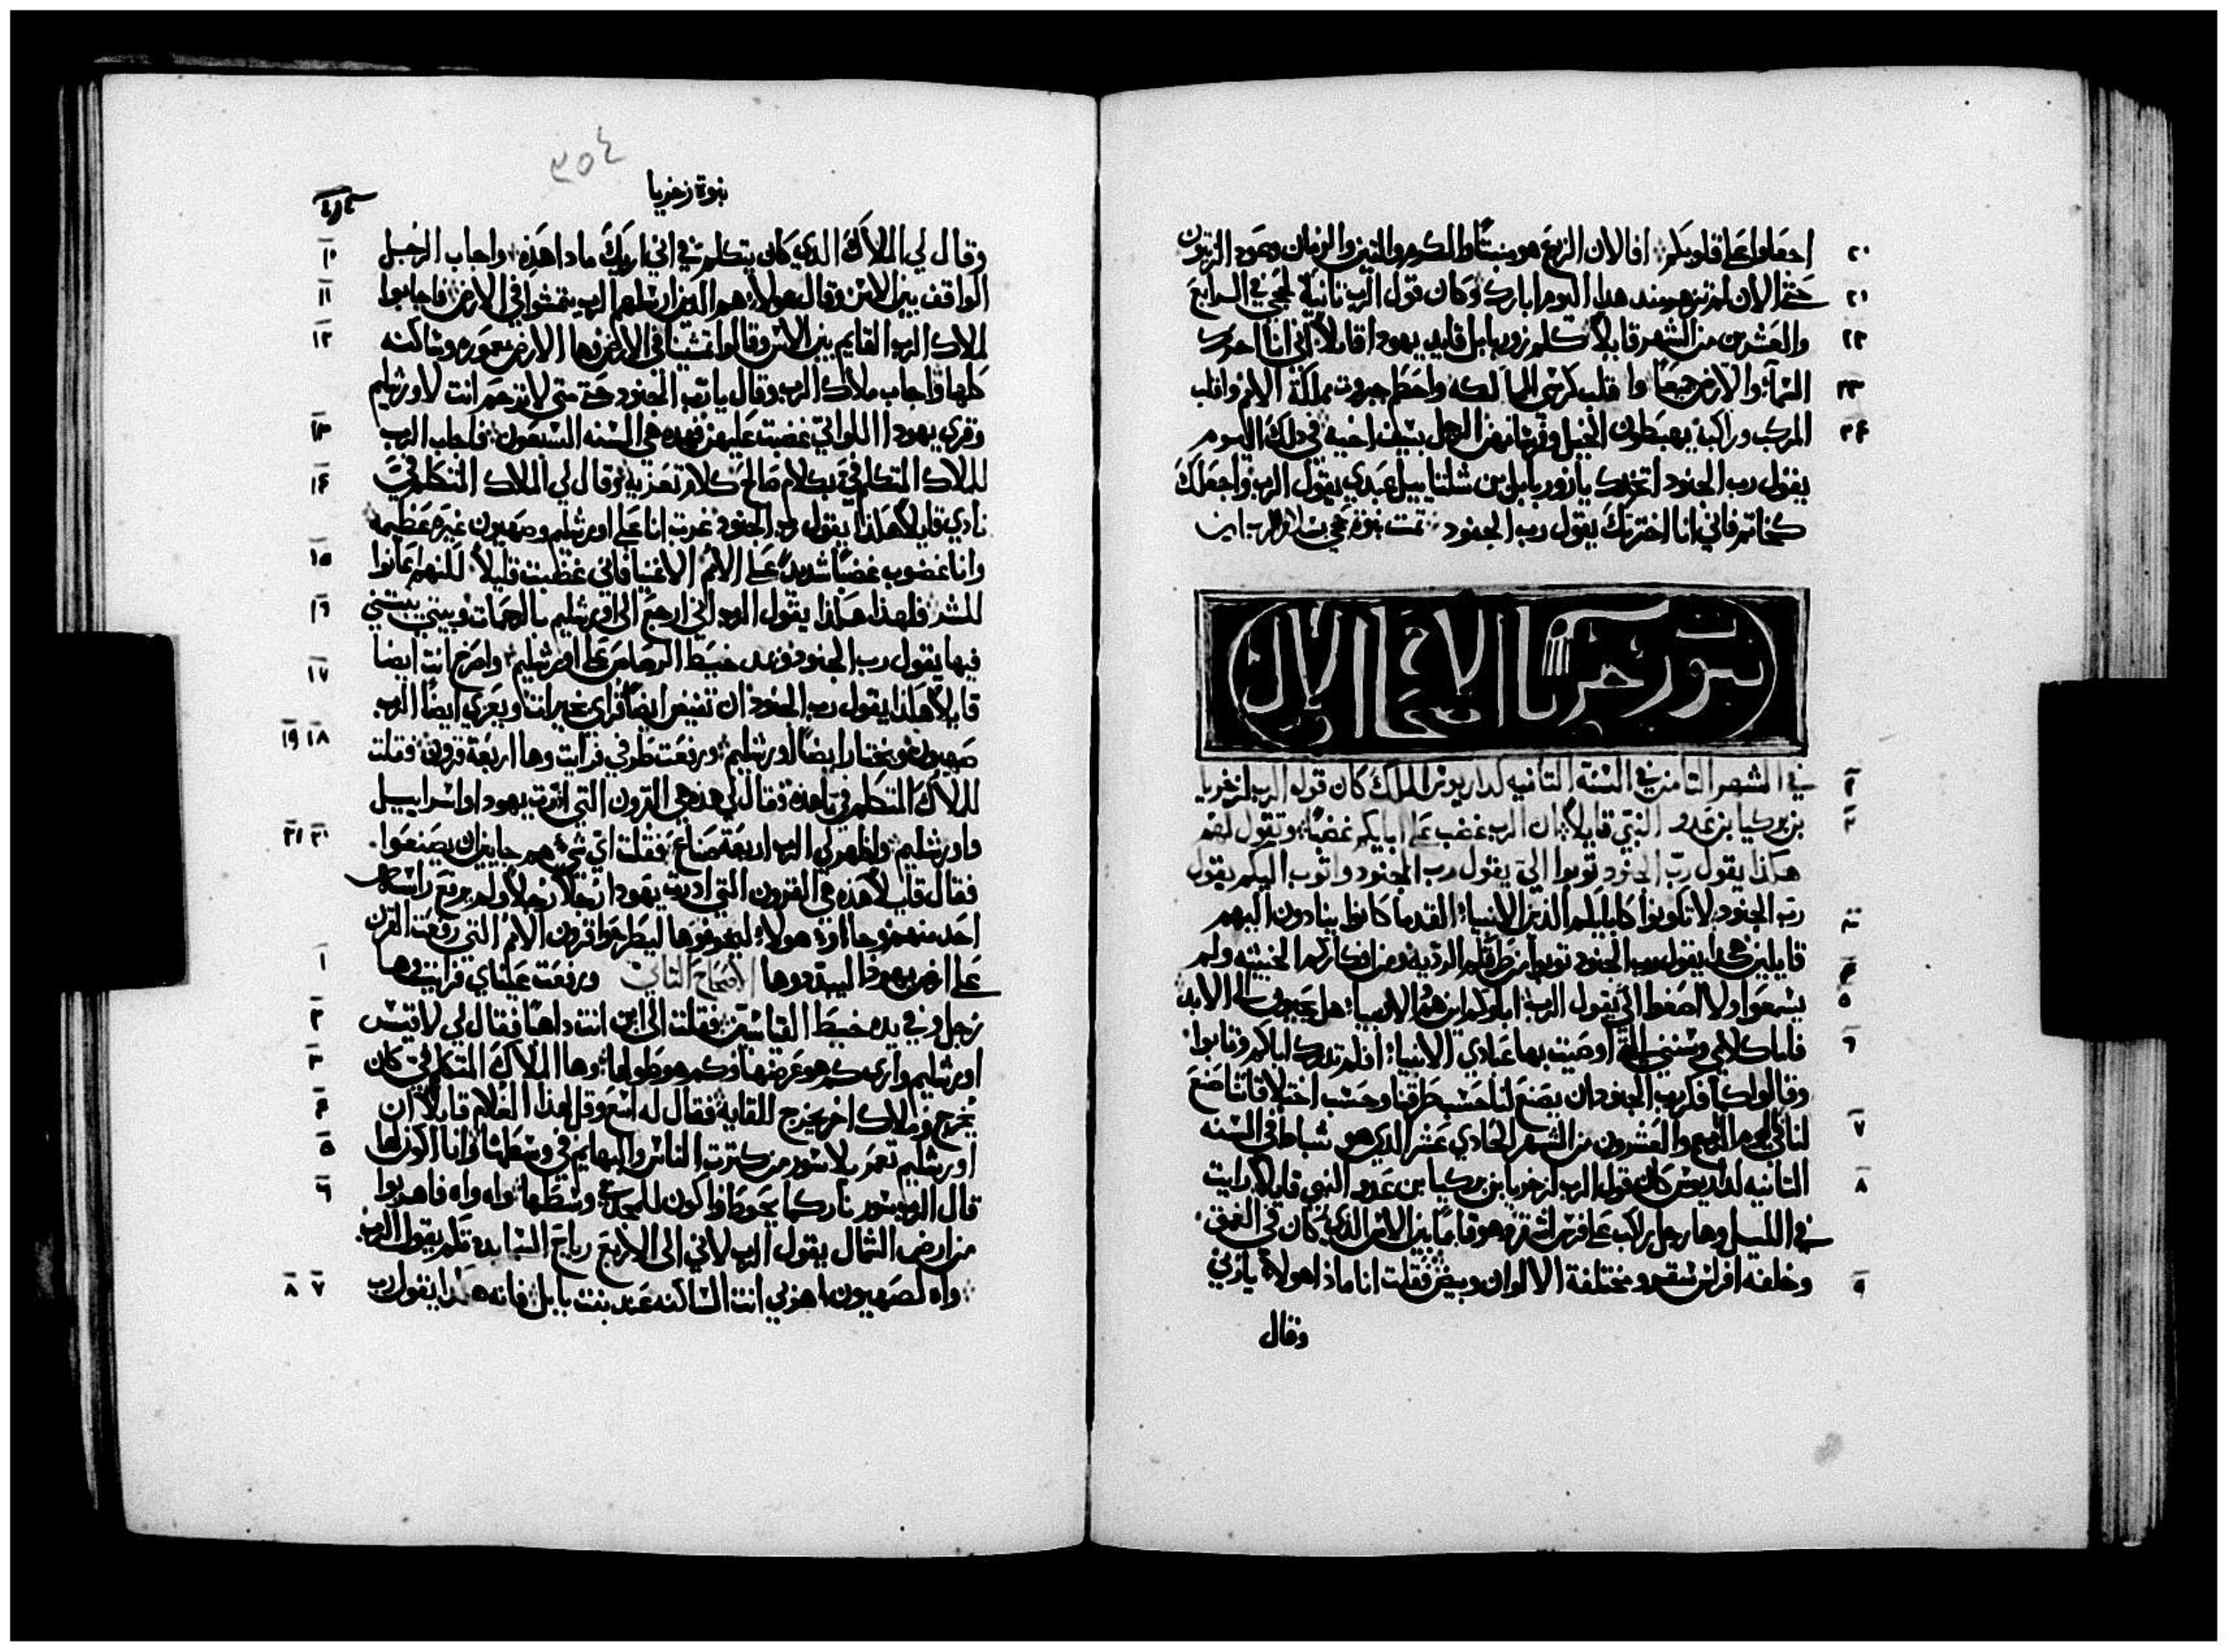 اجعلوا على قلوبكم افالان الزرع هو منبتًا والكرم والتين والرمان وعود الزيتون
حتى الان لم تزهر منذ هدا اليوم ابارك وكان قول الرب ثانية لحجي في الرابع
والعشرين من الشهر قايلاً كلم زوربابل قايد يهودا قايلاً اني انا احرك
السماء والارض جميعًا واقلب كرسي الممالكه واحطم جبروت مملكة الامم واقلب
المركب وراكبه يهبطون الخيل وفرسانهن الرجل بسيف اخيه في ذلك اليوم
يقول رب الجنود اتخدك يا زوربابل بن شلتاييل عبدي يقول الرب واجعلك
كخاتم فاني انا اخترتك يقول رب الجنود تمت نبوة حجي بسلام الرب امين
نبوة زخريا الاصحاح الاول
في الشهر التامن في السنة التانيه لداريوس الملك كان قول الرب لزخريا
بن بركيا بن عدو النبي قايلاً ان الرب غضب على ابايكم غضبًا وتقول لهم
هكذا يقول ربّ الجنود توبوا اليّ يقول رب الجنود واتوب اليكم يقول
ربّ الجنود لا تكونوا كابايكم الذين الانبياء القدما كانوا ينادون اليهم
قايلين هكدا يقول رب الجنود توبوا من طرقكم الرديه ومن افكاركم الخبيثه ولم
يسمعوا ولا اصغوا اليّ يقول الرب اباوكم اين هم الانبيا هل يحيون الى الابد
فاما كلامي وسنني التي اوصيت بها عبادي الانبياء افلم تدرك اباكم وتابوا
وقالوا كما فكر رب الجنود ان يصنع لنا حسب طرقنا وحسب اختلاقاتنا صنع
لنا في اليوم الرابع والعشرون من الشهر الحادي عشر الدي هو شباط في السنه
التانيه لداريوس كان قول الرب لزخريا بن بركيا بن عدو النبي قايلاً رايت
في الليل وها رجل راكب على فرس اشقر وهو قايمًا بين الاس الذي كان في العمق
وخلفه افراس شقر ومختلفة الالوان وبيض فقلت انا ماذا هولاء يا ربي
وقال
نبوة زخريا
٣٥٤
وقال لي الملاك الدي كان يتكلم فيّ اني اريك ما دا هذه واجاب الرجل
الواقف بين الاس وقال هولاء هم الدين ارسلهم الرب يتمشوا في الارض فاجابوا
لملاك الرب القايم بين الاس وقالوا تمشينا في الارض وها الارض معموره وساكنه
كلها واجاب ملاك الرب وقال يا رب الجنود حتى متى لا ترحم انت لاورشليم
وقري يهودا اللواتي غضبت عليهن فهده هي السنه السبعون فاجاب الرب
للملاك المتكلم فيّ بكلام صالح كلام تعزيه وقال لي الملاك المتكلم فيّ
نادي قايلاً هكذا يقول رب الجنود غرت انا على اورشليم وصهيون غيره عظيمه
وانا غضوب غضبًا شديدًا على الامم الاغنيا فاني غظبت قليلاً لكنهم اعانوا
للشر فلهذا هكذا يقول الرب اني ارجع الى اورشليم بالرحمات وبيتي يبتني
فيها يقول رب الجنود ويمد خيط الرصاص على اورشليم واصرخ انت ايضا
قايلاً هكذا يقول رب الجنود ان تفيض ايضًا قراي خيرات ويعزي ايضًا الرب
صهيون ويختار ايضًا اورشليم ورفعت طرفي فرايت وها اربعة قرون فقلت
للملاك المتكلم فيّ ما هده فقال لي هده هي القرون التي ادرت يهودا واسراييل
واورشليم واظهر لي الرب اربعة صناع فقلت اي شيء هم جايين ان يصنعوا
فقال قايلاً هذه هي القرون التي ادرت يهودا رجلاً رجلاً ولم يرفع راسه
احد منهم وجاووا هولاء ليخوفوها ليطرحوا قرون الامم التي رفعت القرن
على ارض يهودا ليبددوها الاصحاح التاني ورفعت عيناي فرايت وها
رجل وفي يده خيط القاسين فقلت الى اين انت داهبًا فقال لي لاقيس
اورشليم واري كم هو عرضها وكم هو طولها وها الملاك المتكلم فيّ كان
يخرج وملاك اخر يخرج للقايه فقال له اسع وقل لهذا الغلام قايلاً ان
اورشليم تعمر بلا سور من كترت الناس والبهايم في وسطها وانا اكون لها
قال الرب سور نار كما يحوطها واكون للمجد في وسطها واه واه فاهربوا
من ارض الشمال يقول الرب لاني الى الاربع رياح السما بددتكم يقول الرب
واه لصهيون اهربي انت الساكنه عند بنت بابل فانه هكذا يقول رب